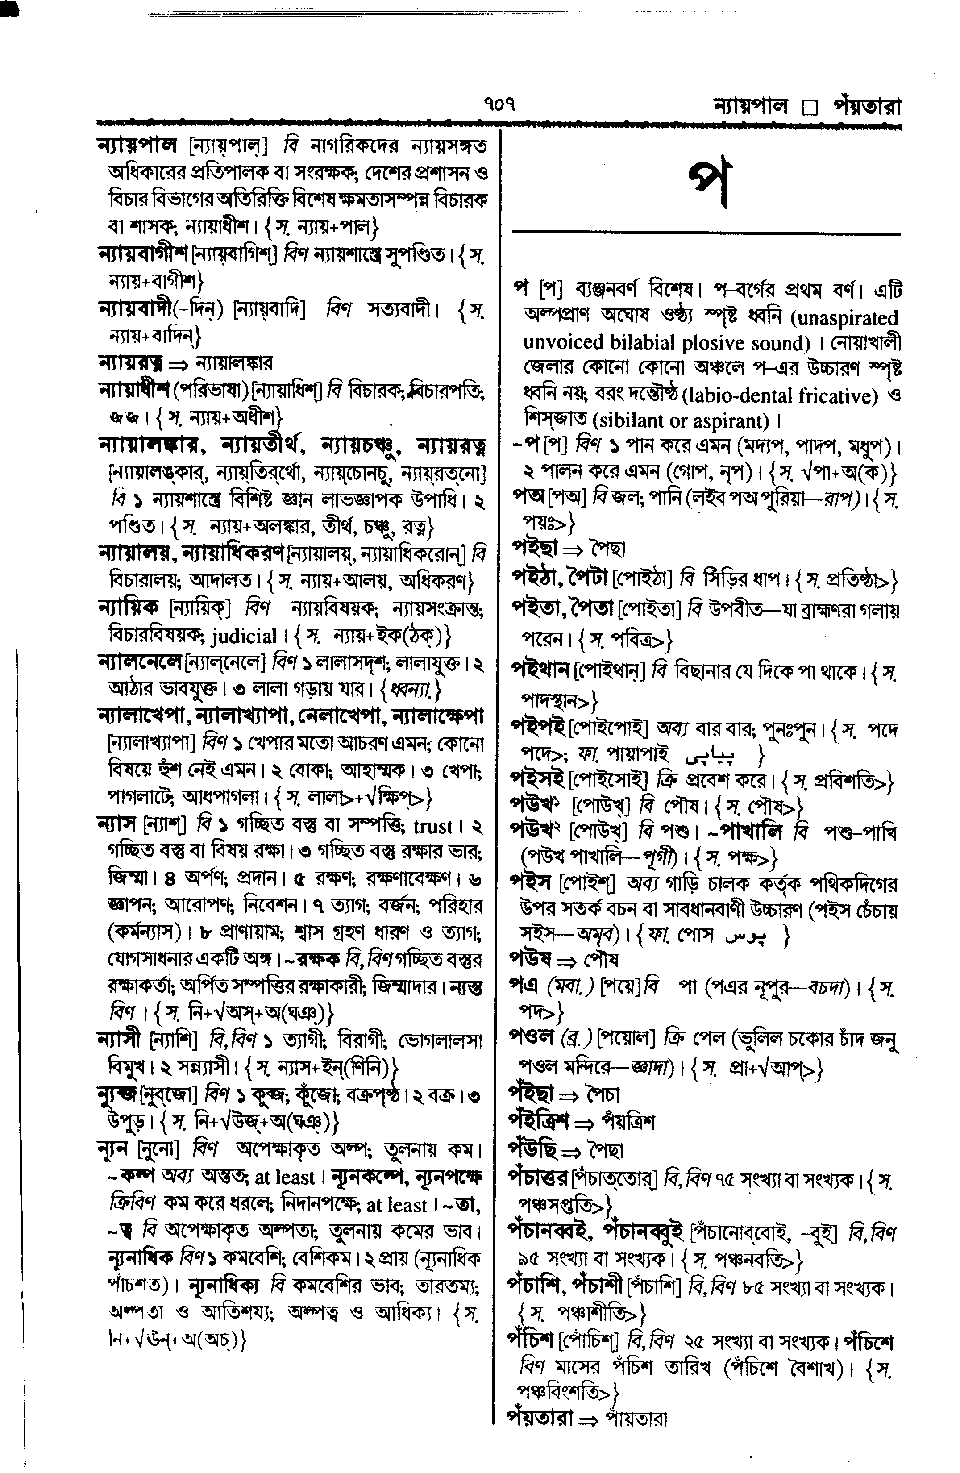 ৭০৭
ন্যায়পাল □ পঁয়তারা
ন্যায়পাল [ন্যায়্‌পাল্] বি নাগরিকদের ন্যায়সঙ্গত
অধিকারের প্রতিপালক বা সংরক্ষক; দেশের প্রশাসন ও
বিচার বিভাগের অতিরিক্তি বিশেষ ক্ষমতাসম্পন্ন বিচারক
বা শাসক; ন্যায়াধীশ। {স. ন্যায়+পাল}
ন্যায়বাগীশ [ন্যায়্‌বাগিশ্] বিণ ন্যায়শাস্ত্রে সুপণ্ডিত। {স.
ন্যায়+বাগীশ}
ন্যায়বাদী (-দিন্) [ন্যায়্‌বাদি] বিণ সত্যবাদী। {স.
ন্যায়+বাদিন্}
ন্যায়রত্ন ⇒ ন্যায়ালঙ্কার
ন্যায়াধীশ (পরিভাষা) [ন্যায়াধিশ্] বি বিচারক; বিচারপতি;
জজ। {স. ন্যায়+অধীশ}
ন্যায়ালঙ্কার, ন্যায়তীর্থ, ন্যায়চঞ্চু, ন্যায়রত্ন
[ন্যায়ালঙ্‌কার্, ন্যায়্‌তির্‌থো, ন্যায়্‌চোন্‌চু, ন্যায়্‌রত্‌নো]
বি ১ ন্যায়শাস্ত্রে বিশিষ্ট জ্ঞান লাভজ্ঞাপক উপাধি। ২
পণ্ডিত। {স. ন্যায়+অলঙ্কার, তীর্থ, চঞ্চু, রত্ন}
ন্যায়ালয়, ন্যায়াধিকরণ [ন্যায়ালয়্, ন্যায়াধিকরোন্] বি
বিচারালয়; আদালত। {স. ন্যায়+আলয়, অধিকরণ}
ন্যায়িক [ন্যায়িক্] বিণ ন্যায়বিষয়ক; ন্যায়সংক্রান্ত;
বিচারবিষয়ক; judicial। {স. ন্যায়+ইক(ঠক্)}
ন্যালনেলে [ন্যাল্‌নেলে] বিণ ১ লালাসদৃশ; লালাযুক্ত। ২
আঠার ভাবযুক্ত। ৩ লালা গড়ায় যাব। {ধ্বন্যা.}
ন্যালাখেপা, ন্যালাখ্যাপা, নেলাখেপা, ন্যালাক্ষেপা
[ন্যালাখ্যাপা] বিণ ১ খেপার মতো আচরণ এমন; কোনো
বিষয়ে হুঁশ নেই এমন। ২ বোকা; আহাম্মক। ৩ খেপা;
পাগলাটে; আধপাগলা। {স. লালা>+√ক্ষিপ্>}
ন্যাস [ন্যাশ্] বি ১ গচ্ছিত বস্তু বা সম্পত্তি; trust। ২
গচ্ছিত বস্তু বা বিষয় রক্ষা। ৩ গচ্ছিত বস্তু রক্ষার ভার;
জিম্মা। ৪ অর্পণ; প্রদান। ৫ রক্ষণ; রক্ষণাবেক্ষণ। ৬
জ্ঞাপন; আরোপণ; নিবেশন। ৭ ত্যাগ; বর্জন; পরিহার
(কর্মন্যাস)। ৮ প্রাণায়াম; শ্বাস গ্রহণ ধারণ ও ত্যাগ;
যোগসাধনার একটি অঙ্গ। ~রক্ষক বি, বিণ গচ্ছিত বস্তুর
রক্ষাকর্তা; অর্পিত সম্পত্তির রক্ষাকারী; জিম্মাদার। ন্যস্ত
বিণ। {স. নি+√অস্+অ(ঘঞ্)}
ন্যাসী [ন্যাশি] বি, বিণ ১ ত্যাগী; বিরাগী; ভোগলালসা
বিমুখ। ২ সন্ন্যাসী। {স. ন্যাস+ইন্(ণিনি)}
ন্যুব্জ [নুব্‌জো] বিণ ১ কুব্জ; কুঁজো; বক্রপৃষ্ঠ। ২ বক্র। ৩
উপুড়। {স. নি+√উব্জ্+অ(ঘঞ্)}
ন্যূন [নুনো] বিণ অপেক্ষাকৃত অল্প; তুলনায় কম।
~কল্প অব্য অন্তত; at least। ন্যূনকল্পে, ন্যূনপক্ষে
ক্রিবিণ কম করে ধরলে; নিদানপক্ষে; at least। ~তা,
~ত্ব বি অপেক্ষাকৃত অল্পতা; তুলনায় কমের ভাব।
ন্যূনাধিক বিণ ১ কমবেশি; বেশিকম। ২ প্রায় (ন্যূনাধিক
পাঁচশত)। ন্যূনাধিক্য বি কমবেশির ভাব; তারতম্য;
অল্পতা ও আতিশয্য; অল্পত্ব ও আধিক্য। {স.
নি+√ঊন্+অ(অচ্)}
প
প [প] ব্যঞ্জনবর্ণ বিশেষ। প-বর্গের প্রথম বর্ণ। এটি
অল্পপ্রাণ অঘোষ ওষ্ঠ্য স্পৃষ্ট ধ্বনি (unaspirated
unvoiced bilabial plosive sound)। নোয়াখালী
জেলার কোনো কোনো অঞ্চলে প-এর উচ্চারণ স্পৃষ্ট
ধ্বনি নয়; বরং দন্তৌষ্ঠ (labio-dental fricative) ও
শিসজাত (sibilant or aspirant)।
-প [প] বিণ ১ পান করে এমন (মদ্যপ, পাদপ, মধুপ)।
২ পালন করে এমন (গোপ, নৃপ)। {স. √পা+অ(ক)}
পঅ [পঅ] বি জল; পানি (লইব পঅ পুরিয়া—রাপ)। {স.
পয়ঃ>}
পইছা ⇒ পৈছা
পইঠা, পৈটা [পোইঠা] বি সিঁড়ির ধাপ। {স. প্রতিষ্ঠা>}
পইতা, পৈতা [পোইতা] বি উপবীত—যা ব্রাহ্মণরা গলায়
পরেন। {স. পবিত্র>}
পইথান [পোইথান্] বি বিছানার যে দিকে পা থাকে। {স.
পাদস্থান>}
পইপই [পোইপোই] অব্য বার বার; পুনঃপুন। {স. পদে
পদে>; ফা. পায়াপাই پیاپی}
পইসই [পোইসোই] ক্রি প্রবেশ করে। {স. প্রবিশতি>}
পউখ১ [পোউখ্] বি পৌষ। {স. পৌষ>}
পউখ২ [পোউখ্] বি পশু। ~পাখালি বি পশু-পাখি
(পউখ পাখালি—পূগী)। {স. পক্ষ>}
পইস [পোইশ্] অব্য গাড়ি চালক কর্তৃক পথিকদিগের
উপর সতর্ক বচন বা সাবধানবাণী উচ্চারণ (পইস চেঁচায়
সইস—অমৃব)। {ফা. পোস پوس}
পউষ ⇒ পৌষ
পএ (মবা.) [পয়ে] বি পা (পএর নূপুর—বচদা)। {স.
পদ>}
পওল (ব্র.) [পয়োল] ক্রি পেল (ভুলিল চকোর চাঁদ জনু
পওল মন্দিরে—জ্ঞাদা)। {স. প্রা+√আপ্>}
পঁইছা ⇒ পৈচা
পঁইত্রিশ ⇒ পঁয়ত্রিশ
পঁউছি ⇒ পৈছা
পঁচাত্তর [পঁচাত্‌তোর্] বি, বিণ ৭৫ সংখ্যা বা সংখ্যক। {স.
পঞ্চসপ্ততি>}
পঁচানব্বই, পঁচানব্বুই [পঁচানোব্‌বোই, -বুই] বি, বিণ
৯৫ সংখ্যা বা সংখ্যক। {স. পঞ্চনবতি>}
পঁচাশি, পঁচাশী [পঁচাশি] বি, বিণ ৮৫ সংখ্যা বা সংখ্যক।
{স. পঞ্চাশীতি>}
পঁচিশ [পোঁচিশ্] বি, বিণ ২৫ সংখ্যা বা সংখ্যক। পঁচিশে
বিণ মাসের পঁচিশ তারিখ (পঁচিশে বৈশাখ)। {স.
পঞ্চবিংশতি>}
পঁয়তারা ⇒ পাঁয়তারা